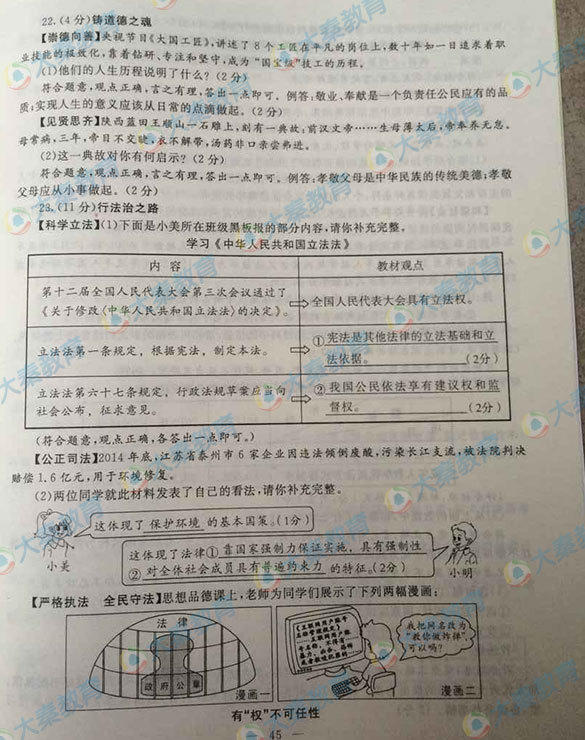 22.(4分)铸道德之魂
【崇德向善】央视节目《大国工匠》,讲述了8个工匠在平凡的岗位上,数十年如一日追求着职
业技能的极致化,靠着钻研、专注和坚守,成为“国宝级”技工的历程。
(1)他们的人生历程说明了什么?(2分)
符合题意,观点正确,言之有理,答出一点即可。例答:敬业、奉献是一个负责任公民应有的品
质;实现人生的意义应该从日常的点滴做起。(2分)
【见贤思齐】陕西蓝田王顺山一石雕上,刻有一典故:前汉文帝……生母薄太后,帝奉养无怠。
母常病,三年,帝目不交睫,衣不解带,汤药非口亲尝弗进。
(2)这一典故对你有何启示?(2分)
符合题意,观点正确,言之有理,答出一点即可。例答:孝敬父母是中华民族的传统美德;孝敬
父母应从小事做起。(2分)
23.(11分)行法治之路
【科学立法】(1)下面是小美所在班级黑板报的部分内容,请你补充完整。
学习《中华人民共和国立法法》
内容 教材观点
第十二届全国人民代表大会第三次会议通过了
《关于修改〈中华人民共和国立法法〉的决定》。
全国人民代表大会具有立法权。
立法法第一条规定,根据宪法,制定本法。
①宪法是其他法律的立法基础和立
法依据。(2分)
立法法第六十七条规定,行政法规草案应当向
社会公布,征求意见。
②我国公民依法享有建议权和监
督权。(2分)
(符合题意,观点正确,各答出一点即可。)
【公正司法】2014年底,江苏省泰州市6家企业因违法倾倒废酸,污染长江支流,被法院判决
赔偿1.6亿元,用于环境修复。
(2)两位同学就此材料发表了自己的看法,请你补充完整。
这体现了保护环境的基本国策。(1分)
小美
这体现了法律①靠国家强制力保证实施,具有强制性
②对全体社会成员具有普遍约束力的特征。(2分)
小明
【严格执法 全民守法】思想品德课上,老师为同学们展示了下列两幅漫画:
法律
政府公章
漫画一
《互联网用户账号
名称管理规定》
互联网用户账
号名称,不得有
暴力、
我把网名改为
“教你做炸弹”,
可以吗?
漫画二
有“权”不可任性
— 45 —
大秦教育